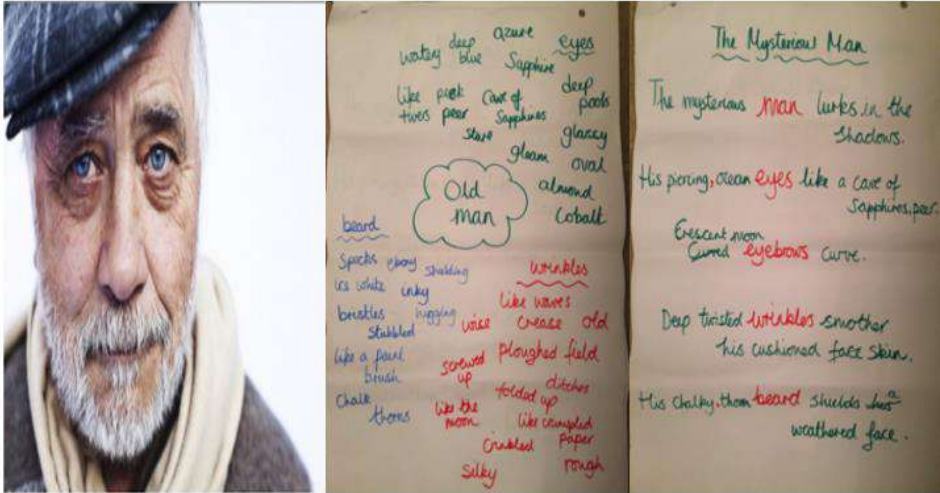 azure eyes
watery deep blue Sapphire
like peek cave of deep pools
twos peer Sapphires
stare glassy
gleam oval
Old man
almond
cobalt
beard
specks ebony shielding
ice white inky
bristles hugging
stubbled
like a paint brush
chalk
thorns
wrinkles
like waves
wise crease old
screwed up ploughed field
ditches
folded up
like the moon like crumpled paper
crinkled
silky rough
The Mysterious Man
The mysterious man lurks in the
shadows.
His piercing, ocean eyes like a cave of
Sapphires, peer.
Crescent moon
Curved eyebrows curve.
Deep twisted wrinkles smother
his cushioned face skin.
His chalky, thorn beard shields his a
weathered face.